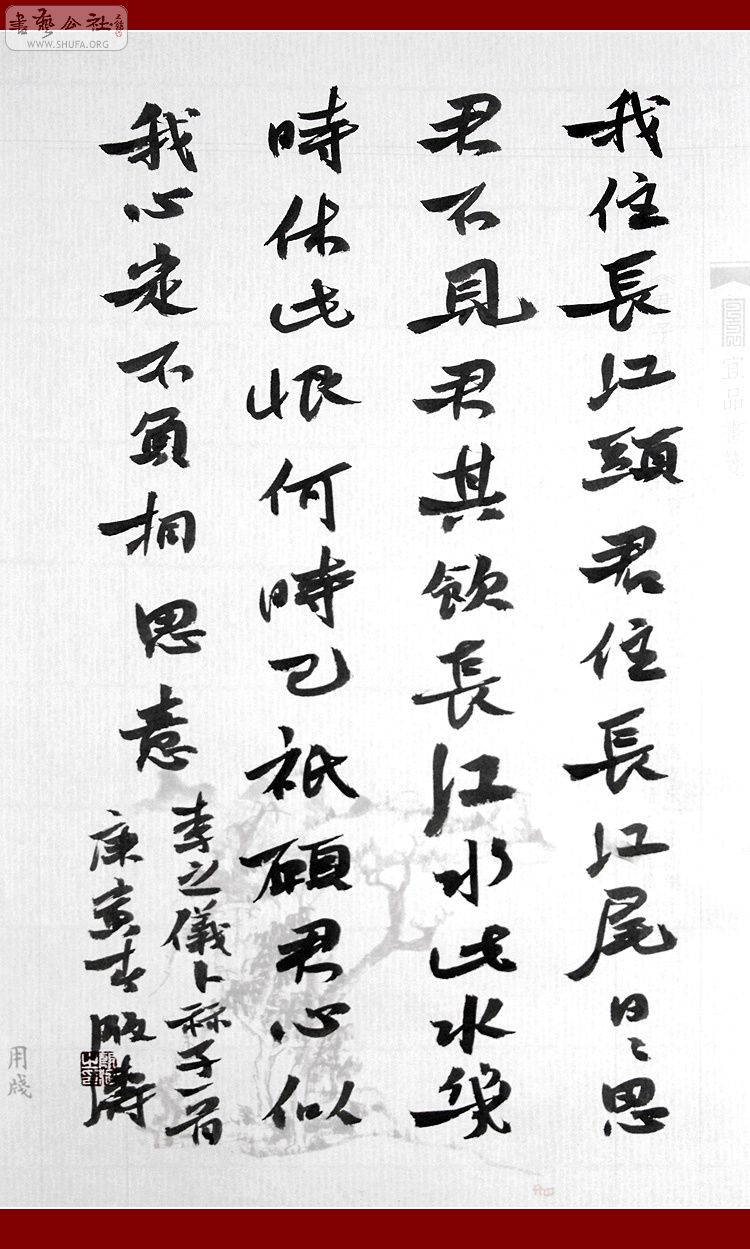 書藝公社
WWW.SHUFA.ORG
我住長江頭君住長江尾日〻思
君不見君共飲長江水此水幾
時休此恨何時已祇願君心似
我心定不負相思意
李之儀卜祘子一首
庚寅春
宜品書箋
用牋